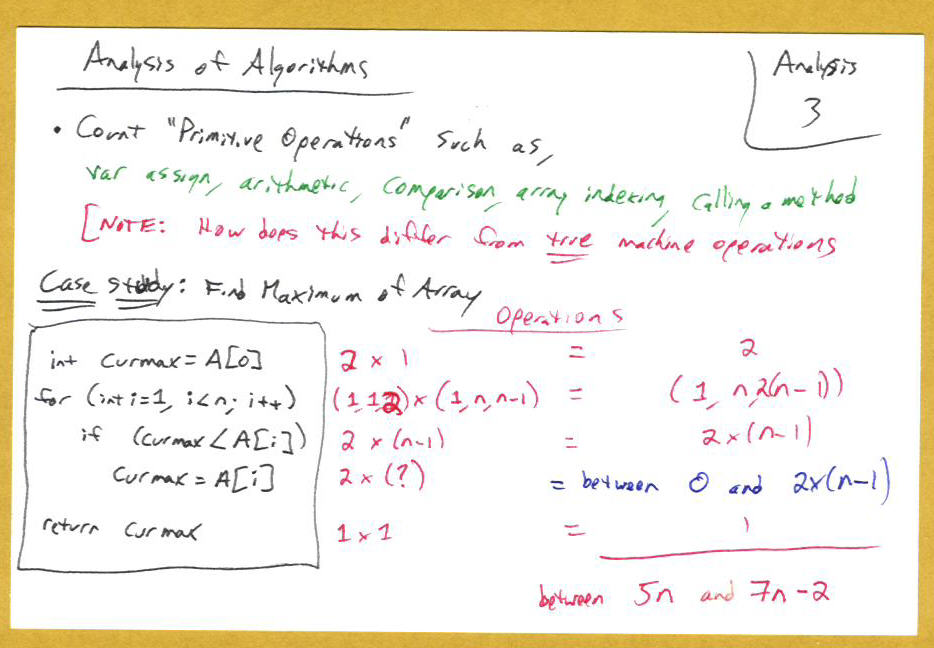 Analysis of Algorithms
Analysis
3
• Count "Primitive Operations" such as,
var assign, arithmetic, comparison, array indexing, calling a method
[NOTE: How does this differ from true machine operations
Case study: Find Maximum of Array
Operations
int curmax = A[0] 2 x 1 = 2
for (int i=1, i<n; i++) (1,1,2) x (1, n, n-1) = (1, n, 2(n-1))
if (curmax < A[i]) 2 x (n-1) = 2 x (n-1)
curmax = A[i] 2 x (?) = between 0 and 2x(n-1)
return curmax 1 x 1 = 1
between 5n and 7n-2